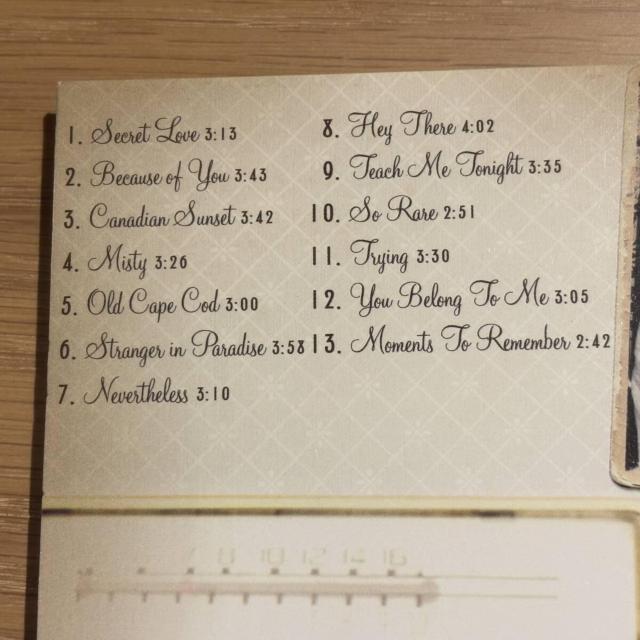 1. Secret Love 3:13
2. Because of You 3:43
3. Canadian Sunset 3:42
4. Misty 3:26
5. Old Cape Cod 3:00
6. Stranger in Paradise 3:58
7. Nevertheless 3:10
8. Hey There 4:02
9. Teach Me Tonight 3:35
10. So Rare 2:51
11. Trying 3:30
12. You Belong To Me 3:05
13. Moments To Remember 2:42
8 10 12 14 16